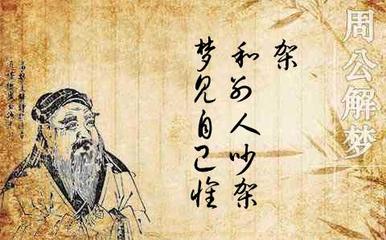 周公解梦
架
和别人吵架
梦见自己惟